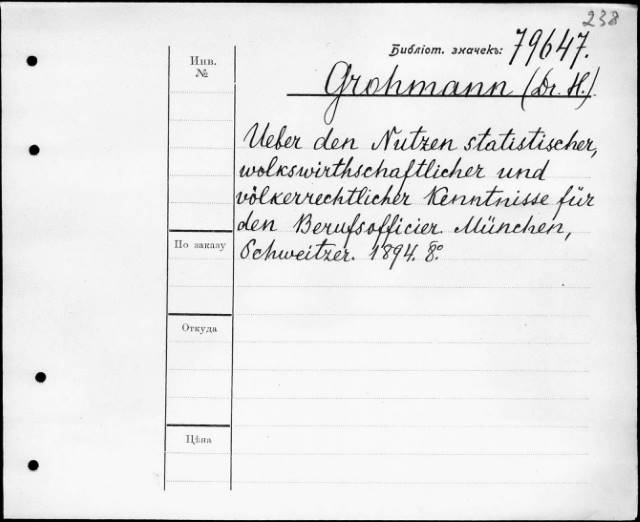 238
Библіот. значекъ: 79647.
Инв.
№
Grohmann (Dr. H.)
Ueber den Nutzen statistischer,
wolkswirthschaftlicher und
völkerrechtlicher Kenntnisse für
den Berufsofficier. München,
Schweitzer. 1894. 8º.
По заказу
Откуда
Цѣна